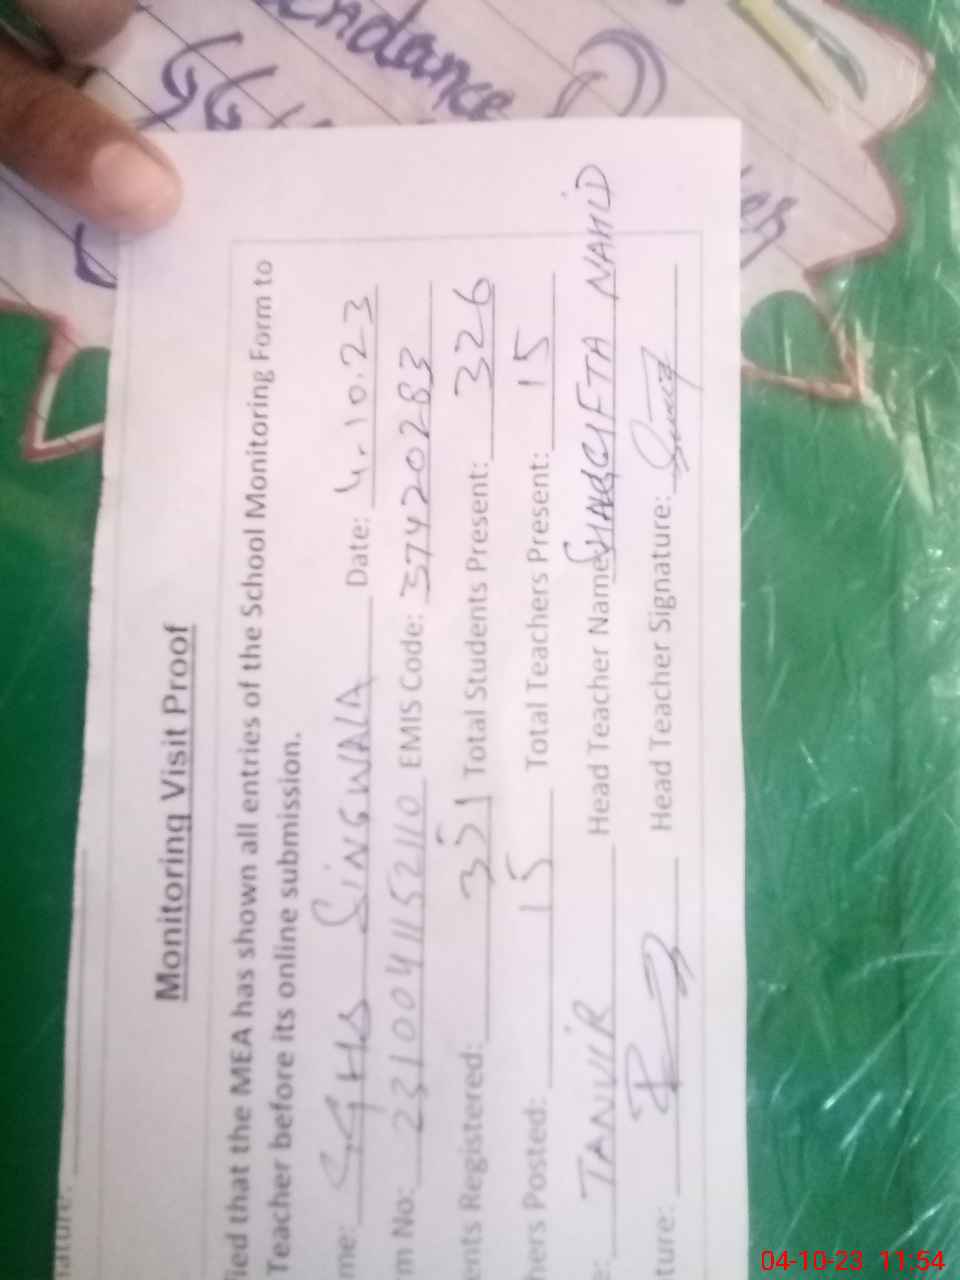 endance
ature:
Monitoring Visit Proof
ied that the MEA has shown all entries of the School Monitoring Form to
Teacher before its online submission.
me: GGHS SINGWALA Date: 4.10.23
m No: 23100411521110 EMIS Code: 37420283
ents Registered: 351 Total Students Present: 326
hers Posted: 15 Total Teachers Present: 15
e: TANVIR Head Teacher Name: SHAGUFTA NAHID
ture: Head Teacher Signature:
04-10-23 11:54